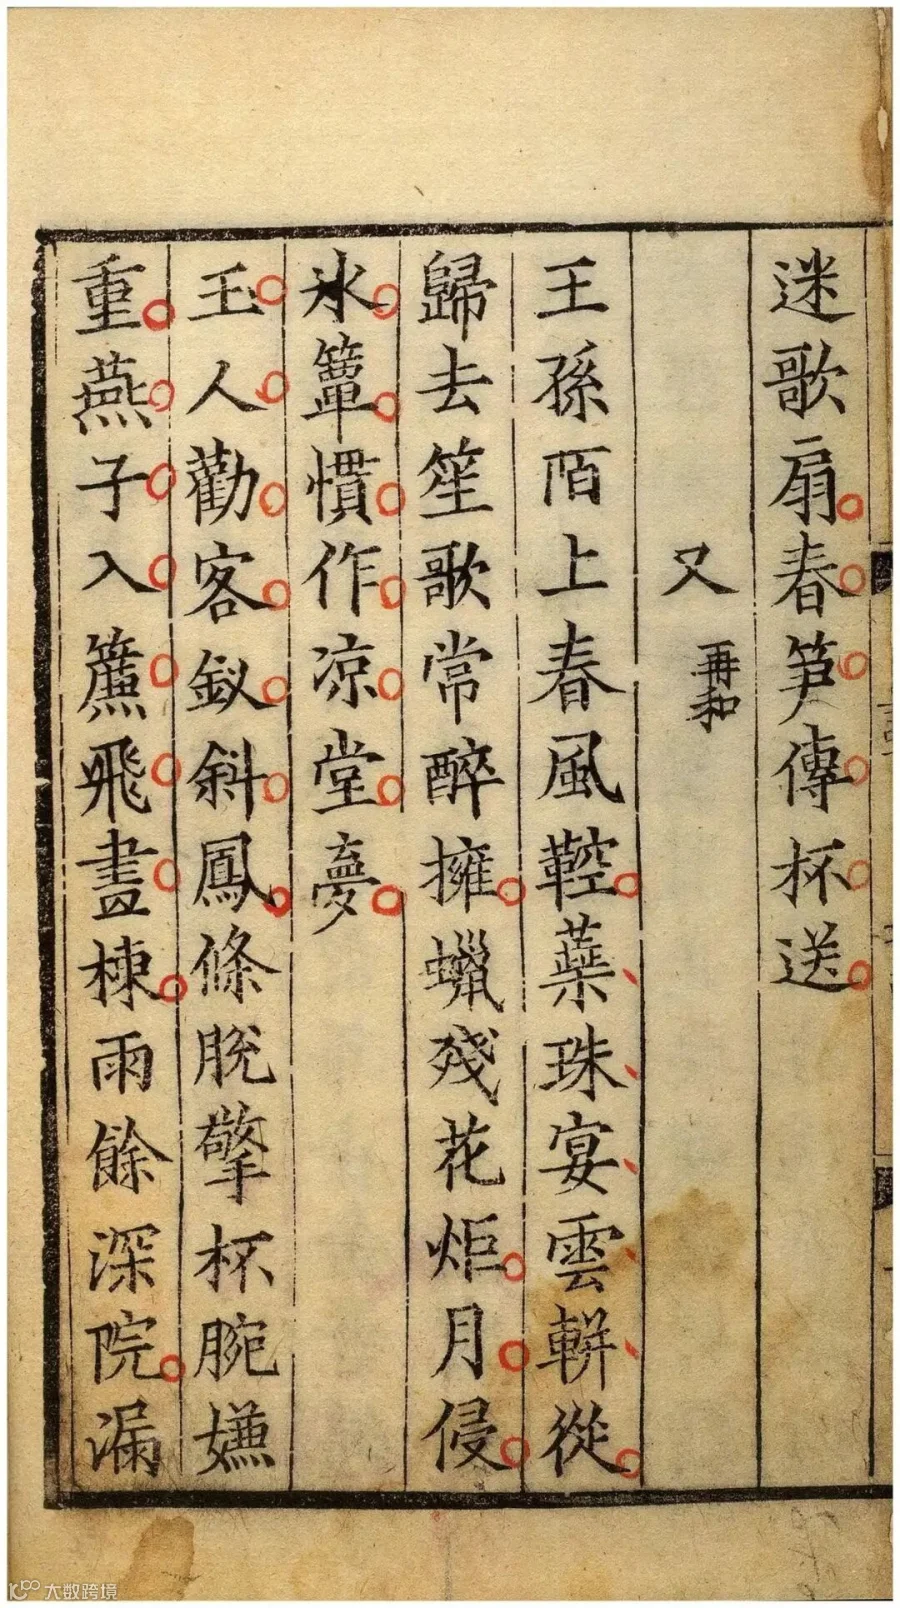 迷歌扇春笋傳杯送
又 再和
王孫陌上春風鞚蘂珠宴雲軿從
歸去笙歌常醉擁蠟殘花炬月侵
氷簟慣作凉堂夢
玉人勸客釵斜鳳條脫擎杯腕嫌
重燕子入簾飛畫棟雨餘深院漏
大数跨境